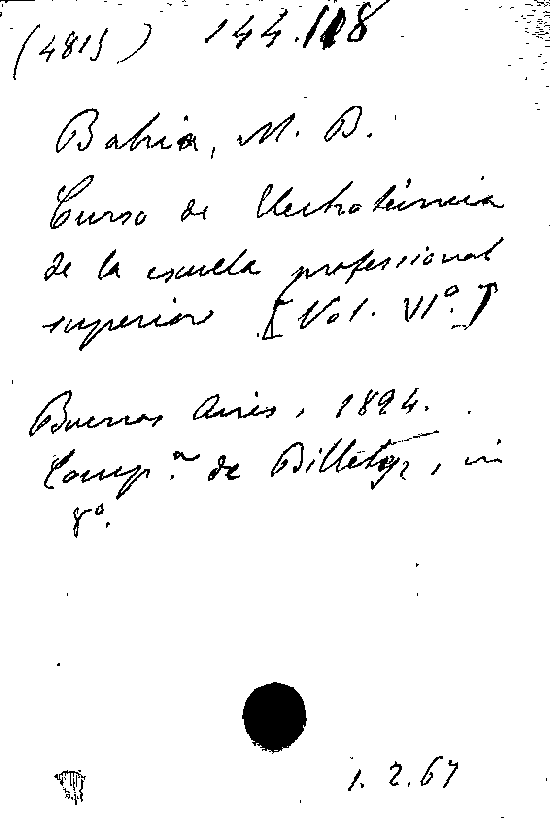 (4815) 144.118
Bahia, M. B.
Curso de Electrotécnica
de la escuela professional
superior [Vol. VIº.]
Buenos Aires, 1894.
Comp.ª de Billetes, in
8º.
1.2.67